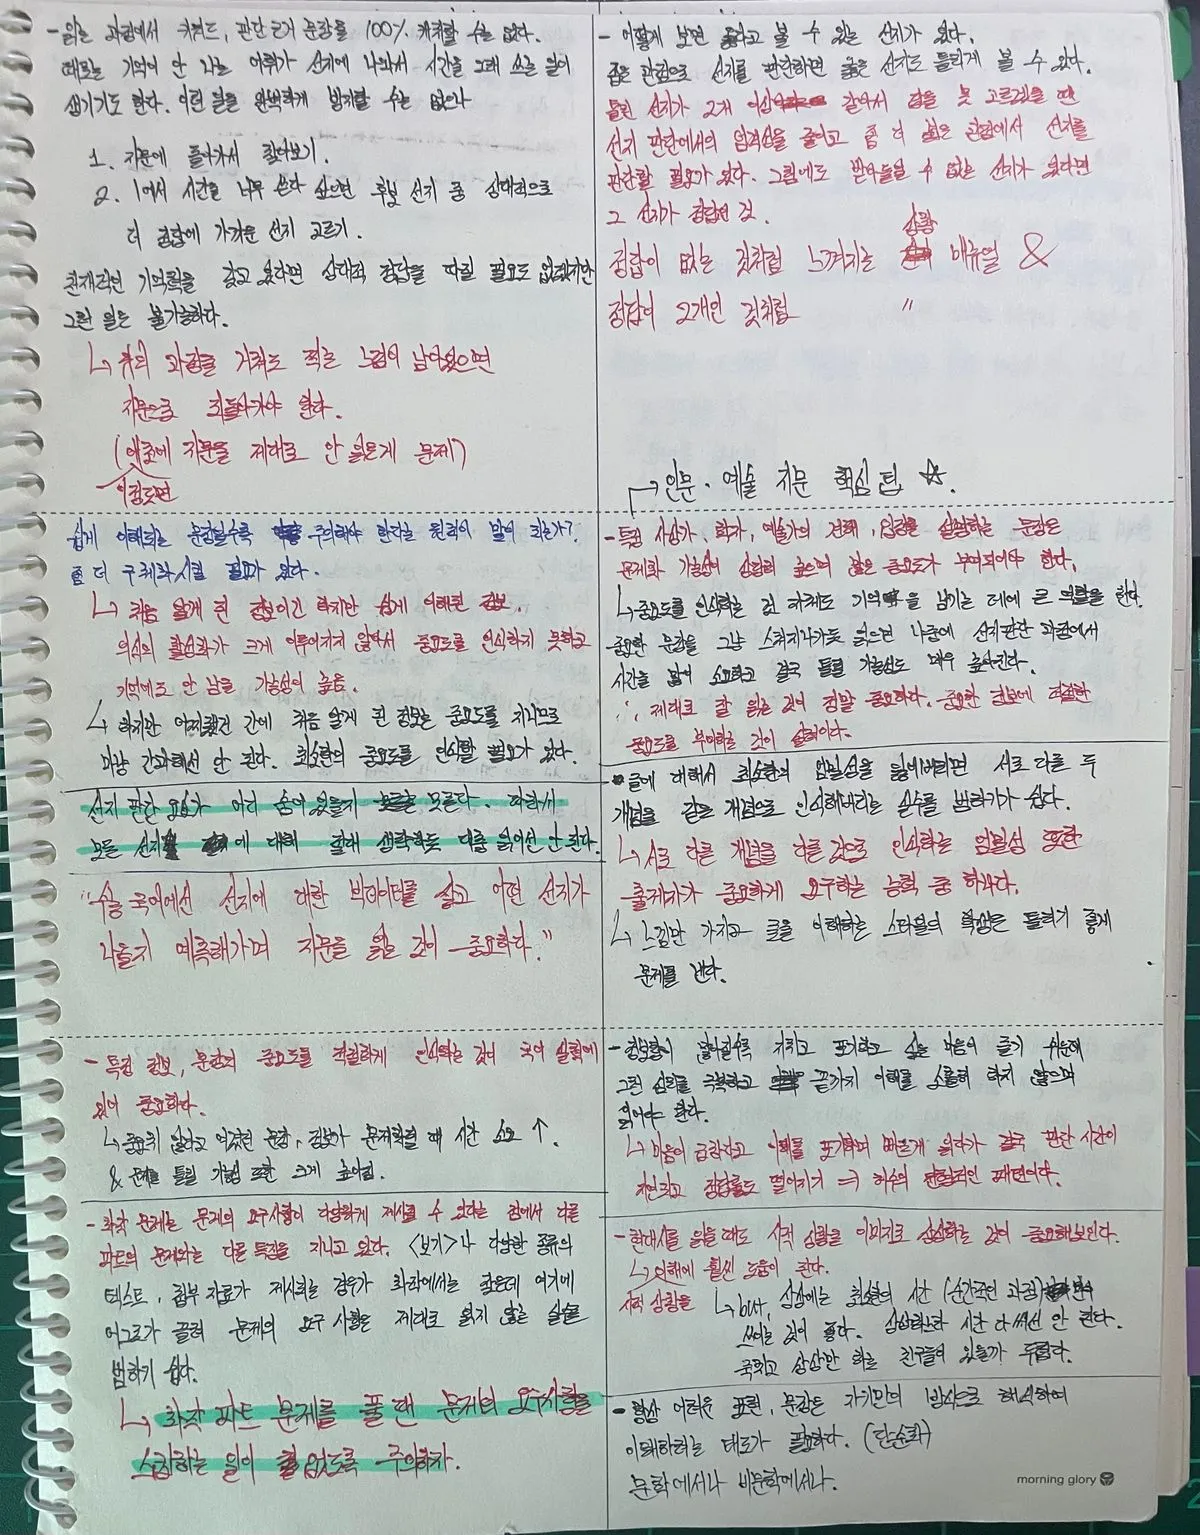 - 읽는 과정에서 키워드, 판단 근거 문장을 100% 캐치할 수는 없다.
때로는 기억이 안 나는 어휘가 선지에 나와서 시간을 그래 쓰는 일이
생기기도 한다. 이런 일을 완벽하게 방지할 수는 없으나
1. 지문에 돌아가서 찾아보기.
2. 1에서 시간을 너무 쓴다 싶으면 후보 선지 중 상대적으로
더 정답에 가까운 선지 고르기.
천재적인 기억력을 갖고 있다면 상대적 정답을 따질 필요도 없겠지만
그런 일은 불가능하다.
↳ 위의 과정을 거쳐도 찍는 느낌이 남아있으면
지문으로 되돌아가야 한다.
(애초에 지문을 제대로 안 읽은게 문제)
이정도면
쉽게 이해되는 문장일수록 주의해야 한다는 원칙이 말이 되는가?
좀 더 구체화시킬 필요가 있다.
↳ 처음 알게 된 정보이긴 하지만 쉽게 이해된 정보.
의식의 활성화가 크게 이루어지지 않아서 중요도를 인식하지 못하고
기억에도 안 남을 가능성이 높음.
↳ 하지만 어찌됐건 간에 처음 알게 된 정보는 중요도를 지니므로
마냥 간과해선 안 된다. 최소한의 중요도를 인식할 필요가 있다.
선지 판단 요소가 어디 숨어 있을지 모른다. 따라서
모든 선지에 대해 절대 생략하듯 대충 읽어선 안 된다.
"수능 국어에선 선지에 대한 빅데이터를 쌓고 어떤 선지가
나올지 예측해가며 지문을 읽는 것이 중요하다."
- 특정 정보, 문장의 중요도를 적절하게 인식하는 것이 국어 실력에
있어 중요하다.
↳ 중요치 않다고 여겼던 문장, 정보가 문제화될 때 시간 소요 ↑.
& 문제를 틀릴 가능성 또한 크게 높아짐.
- 화작 문제는 문제의 요구사항이 다양하게 제시될 수 있다는 점에서 다른
파트의 문제와는 다른 특징을 지니고 있다. <보기>나 다양한 종류의
텍스트, 첨부 자료가 제시되는 경우가 화작에서는 잦은데 여기에
어그로가 끌려 문제의 요구 사항은 제대로 읽지 않는 실수를
범하기 쉽다.
↳ 화작 파트 문제를 풀 땐 문제의 요구사항을
스킵하는 일이 없도록 주의하자.
- 어떻게 보면 옳다고 볼 수 있는 선지가 있다.
좁은 관점으로 선지를 판단하면 옳은 선지도 틀리게 볼 수 있다.
틀린 선지가 2개 이상 같아서 답을 못 고르겠을 땐
선지 판단에서의 엄격성을 줄이고 좀 더 넓은 관점에서 선지를
판단할 필요가 있다. 그럼에도 받아들일 수 없는 선지가 있다면
그 선지가 정답인 것.
상황
정답이 없는 것처럼 느껴지는 메뉴얼 &
정답이 2개인 것처럼 〃
→ 인문·예술 지문 핵심 팁 ☆.
- 특정 사상가, 학자, 예술가의 견해, 입장을 설명하는 문장은
문제화 가능성이 상당히 높으며 높은 중요도가 부여되어야 한다.
↳ 중요도를 인식하는 것 자체도 기억을 남기는 데에 큰 역할을 한다.
중요한 문장을 그냥 스쳐지나가듯 읽으면 나중에 선지판단 과정에서
시간을 많이 소요하고 결국 틀릴 가능성도 매우 높아진다.
∴ 제대로 잘 읽는 것이 정말 중요하다. 중요한 정보에 적절한
중요도를 부여하는 것이 실력이다.
- 글에 대해서 최소한의 엄밀성을 잃어버리면 서로 다른 두
개념을 같은 개념으로 인식해버리는 실수를 범하기가 쉽다.
↳ 서로 다른 개념을 다른 것으로 인식하는 엄밀성 또한
출제자가 중요하게 요구하는 능력 중 하나다.
↳ 느낌만 가지고 글을 이해하는 스타일의 학생은 틀리기 좋게
문제를 낸다.
- 정보량이 많아질수록 지치고 포기하고 싶은 마음이 들기 때문에
그런 심리를 극복하고 끝까지 이해를 소홀히 하지 않으며
읽어야 한다.
↳ 마음이 급하다고 이해를 포기하며 빠르게 읽다가 결국 판단 시간이
지연되고 정답률도 떨어지기 ⇒ 허수의 전형적인 패턴이다.
- 현대시를 읽을 때도 시적 상황을 이미지로 상상하는 것이 중요해보인다.
↳ 이해에 훨씬 도움이 된다.
시적 상황을
↳ but, 상상에는 최소한의 시간 (순간적인 과정)
쓰이는 것이 좋다. 상상하느라 시간 다 써선 안 된다.
국어라고 상상만 하는 친구들이 있을까 두렵다.
- 항상 어려운 표현, 문장은 자기만의 방식으로 해석하여
이해하려는 태도가 필요하다. (단순화)
문학에서나 비문학에서나.
morning glory